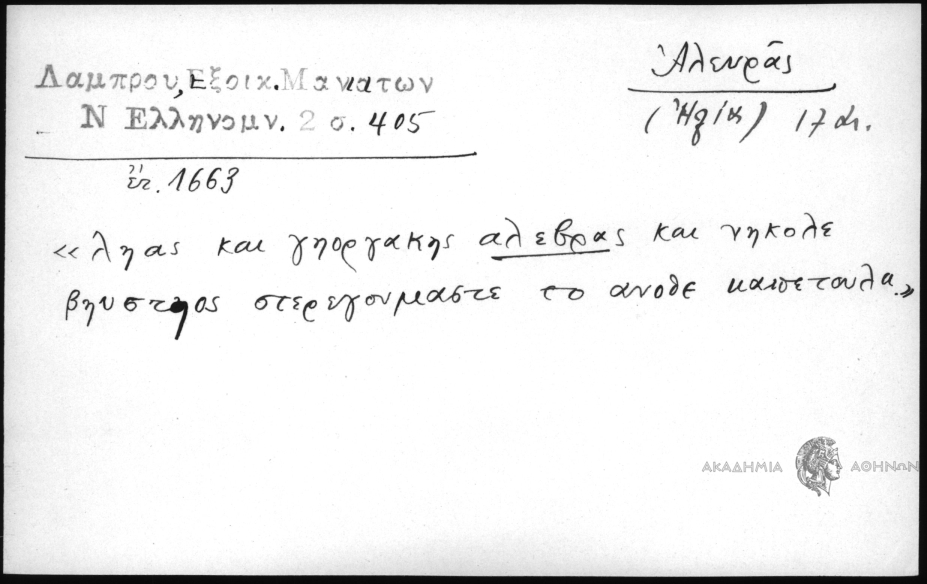 Λαμπρου, Εξοικ. Μανιατων
Ν Ελληνομν. 2 σ. 405
ἔτ. 1663
Ἀλευρᾶς
17 αι.
«ληας και γηοργακης αλεβρας και νηκολε
στερεγουμαστε το ανοθε καπετουλα.»
ΑΚΑΔΗΜΙΑ ΑΘΗΝΩΝ